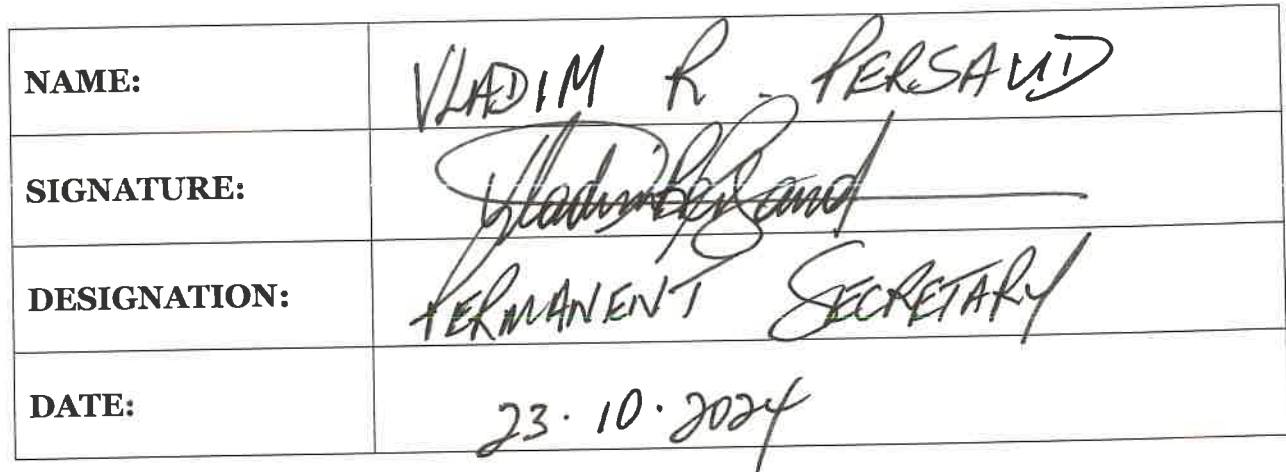 NAME: VLADIM R. PERSAUD
SIGNATURE: Vladim R Persaud
DESIGNATION: PERMANENT SECRETARY
DATE: 23.10.2024